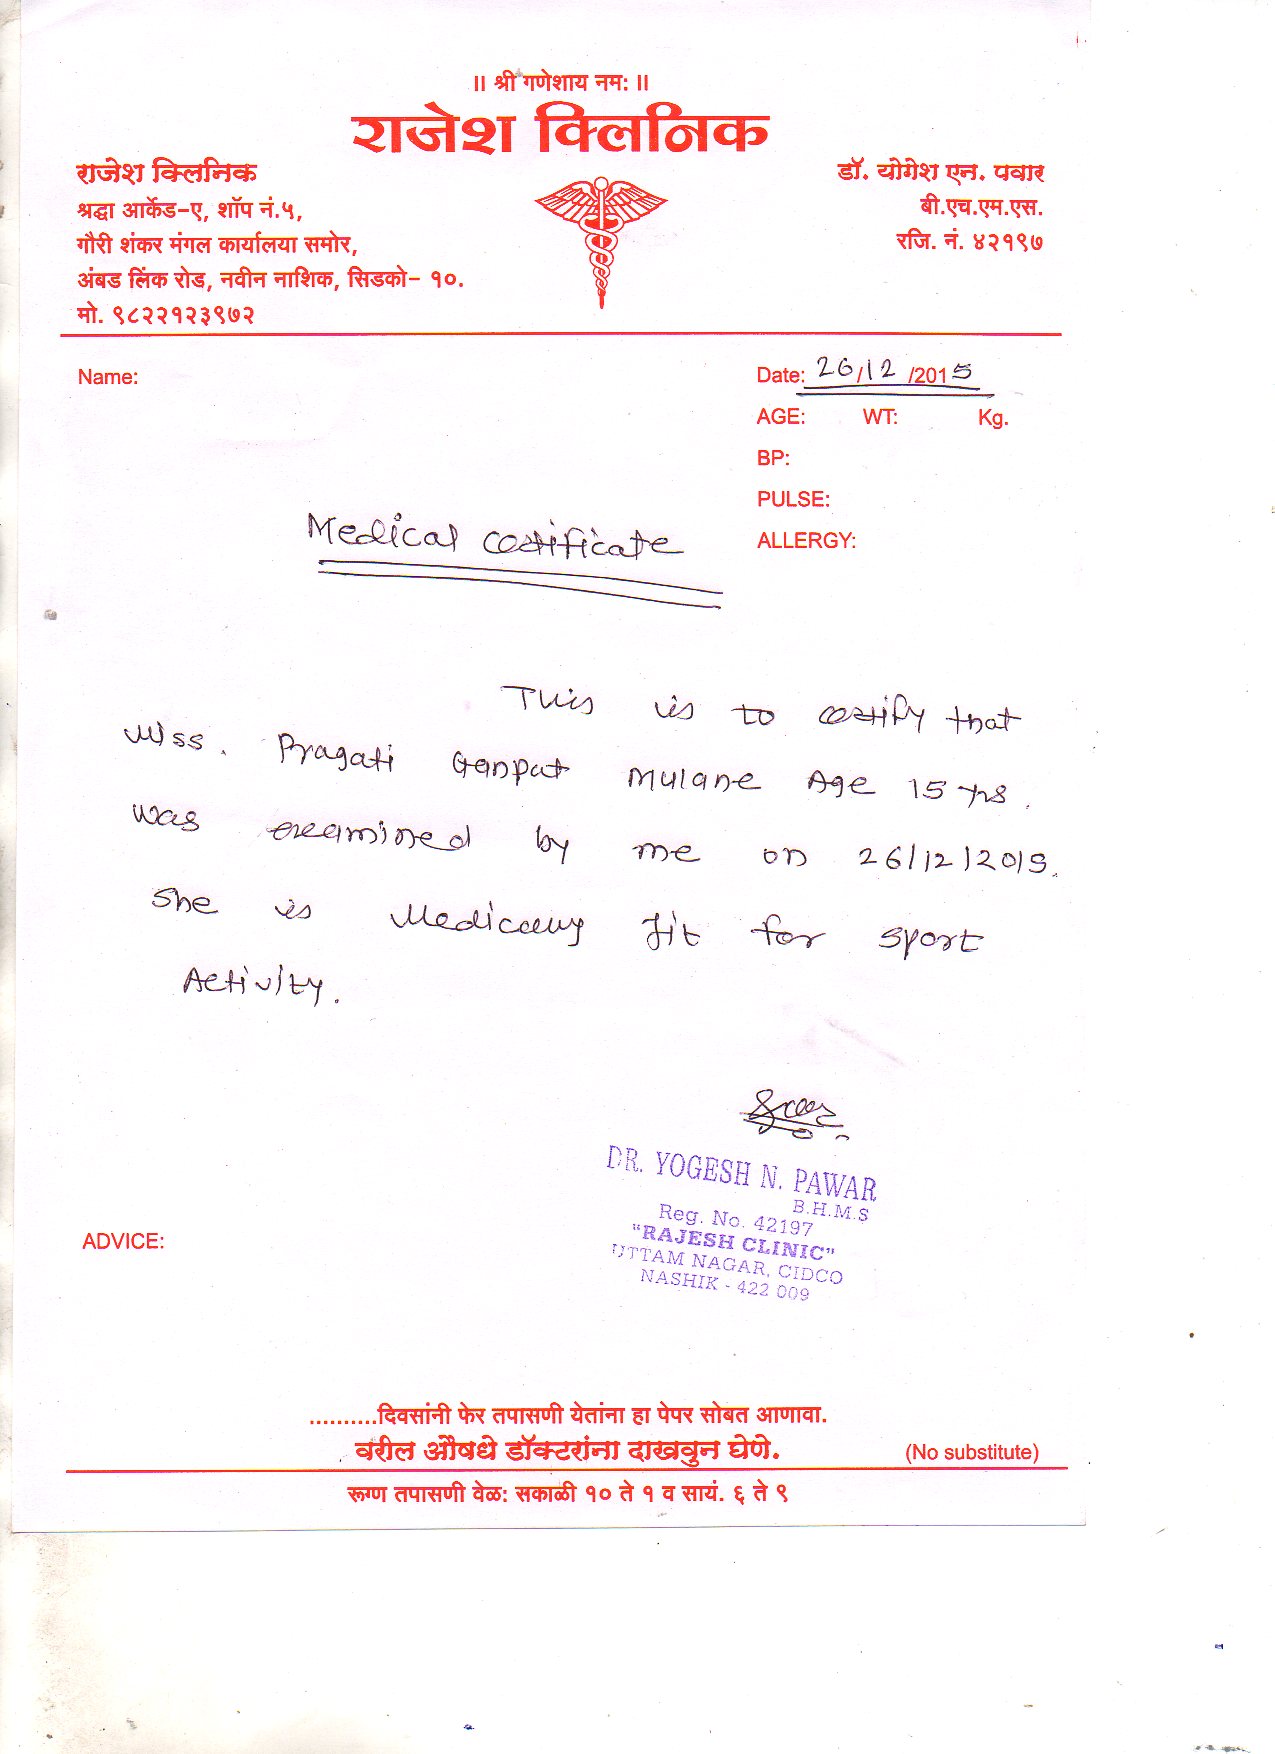 ॥ श्री गणेशाय नम: ॥
राजेश क्लिनिक
राजेश क्लिनिक
श्रद्धा आर्केड-ए, शॉप नं.५,
गौरी शंकर मंगल कार्यालया समोर,
अंबड लिंक रोड, नवीन नाशिक, सिडको- १०.
मो. ९८२२१२३९७२
डॉ. योगेश एन. पवार
बी.एच.एम.एस.
रजि. नं. ४२१९७
Name:
Date: 26/12/2015
AGE: WT: Kg.
BP:
PULSE:
ALLERGY:
Medical certificate
This is to certify that
Miss. Pragati Ganpat Mulane Age 15 yrs.
was examined by me on 26/12/2015.
She is Medically fit for sport
Activity.
DR. YOGESH N. PAWAR
B.H.M.S
Reg. No. 42197
"RAJESH CLINIC"
UTTAM NAGAR, CIDCO
NASHIK - 422 009
ADVICE:
..........दिवसांनी फेर तपासणी येतांना हा पेपर सोबत आणावा.
वरील औषधे डॉक्टरांना दाखवुन घेणे.
(No substitute)
रूग्ण तपासणी वेळ: सकाळी १० ते १ व सायं. ६ ते ९